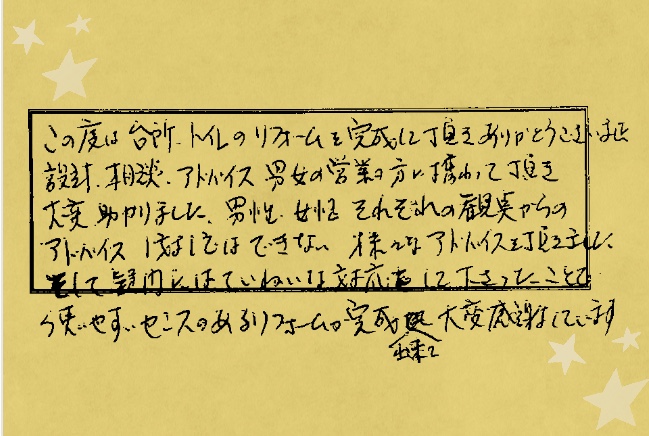 この度は台所、トイレのリフォームを完成して頂きありがとうございました
設計、相談、アドバイス 男女の営業の方に携わって頂き
大変助かりました、男性、女性それぞれの観点からの
アドバイス なしではできない 様々なアドバイスを頂きました、
そして疑問にはていねいな対応をして下さったことで
使いやすいセンスのあるリフォームが完成 出来て 大変感謝しています